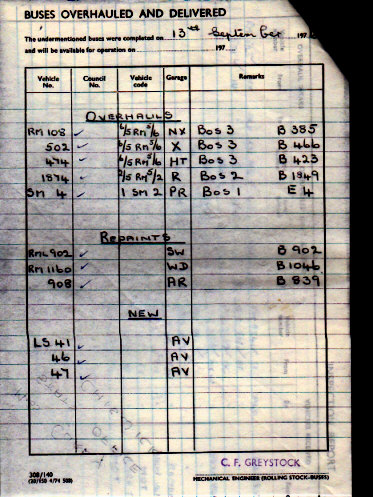 BUSES OVERHAULED AND DELIVERED
The undermentioned buses were completed on 13th September 197
and will be available for operation on 197
Vehicle No. Council No. Vehicle code Garage Remarks
OVERHAULS
RM 108 ✓ 6/5 RM 5/6 NX Bos 3 B 385
502 ✓ 6/5 RM 5/6 X Bos 3 B 466
474 ✓ 6/5 RM 5/6 HT Bos 3 B 423
1874 ✓ 2/5 RM 5/2 R Bos 2 B 1949
SM 4 ✓ 1 SM 2 PR Bos 1 E 4
REPAINTS
RML 902 ✓ SW B 902
RM 1160 ✓ WD B 1046
908 ✓ AR B 839
NEW
LS 41 ✓ AV
46 ✓ AV
47 ✓ AV
CHISWICK
OFFICE
C. F. GREYSTOCK
308/140
MECHANICAL ENGINEER (ROLLING STOCK-BUSES)
(20/150 4/74 508)